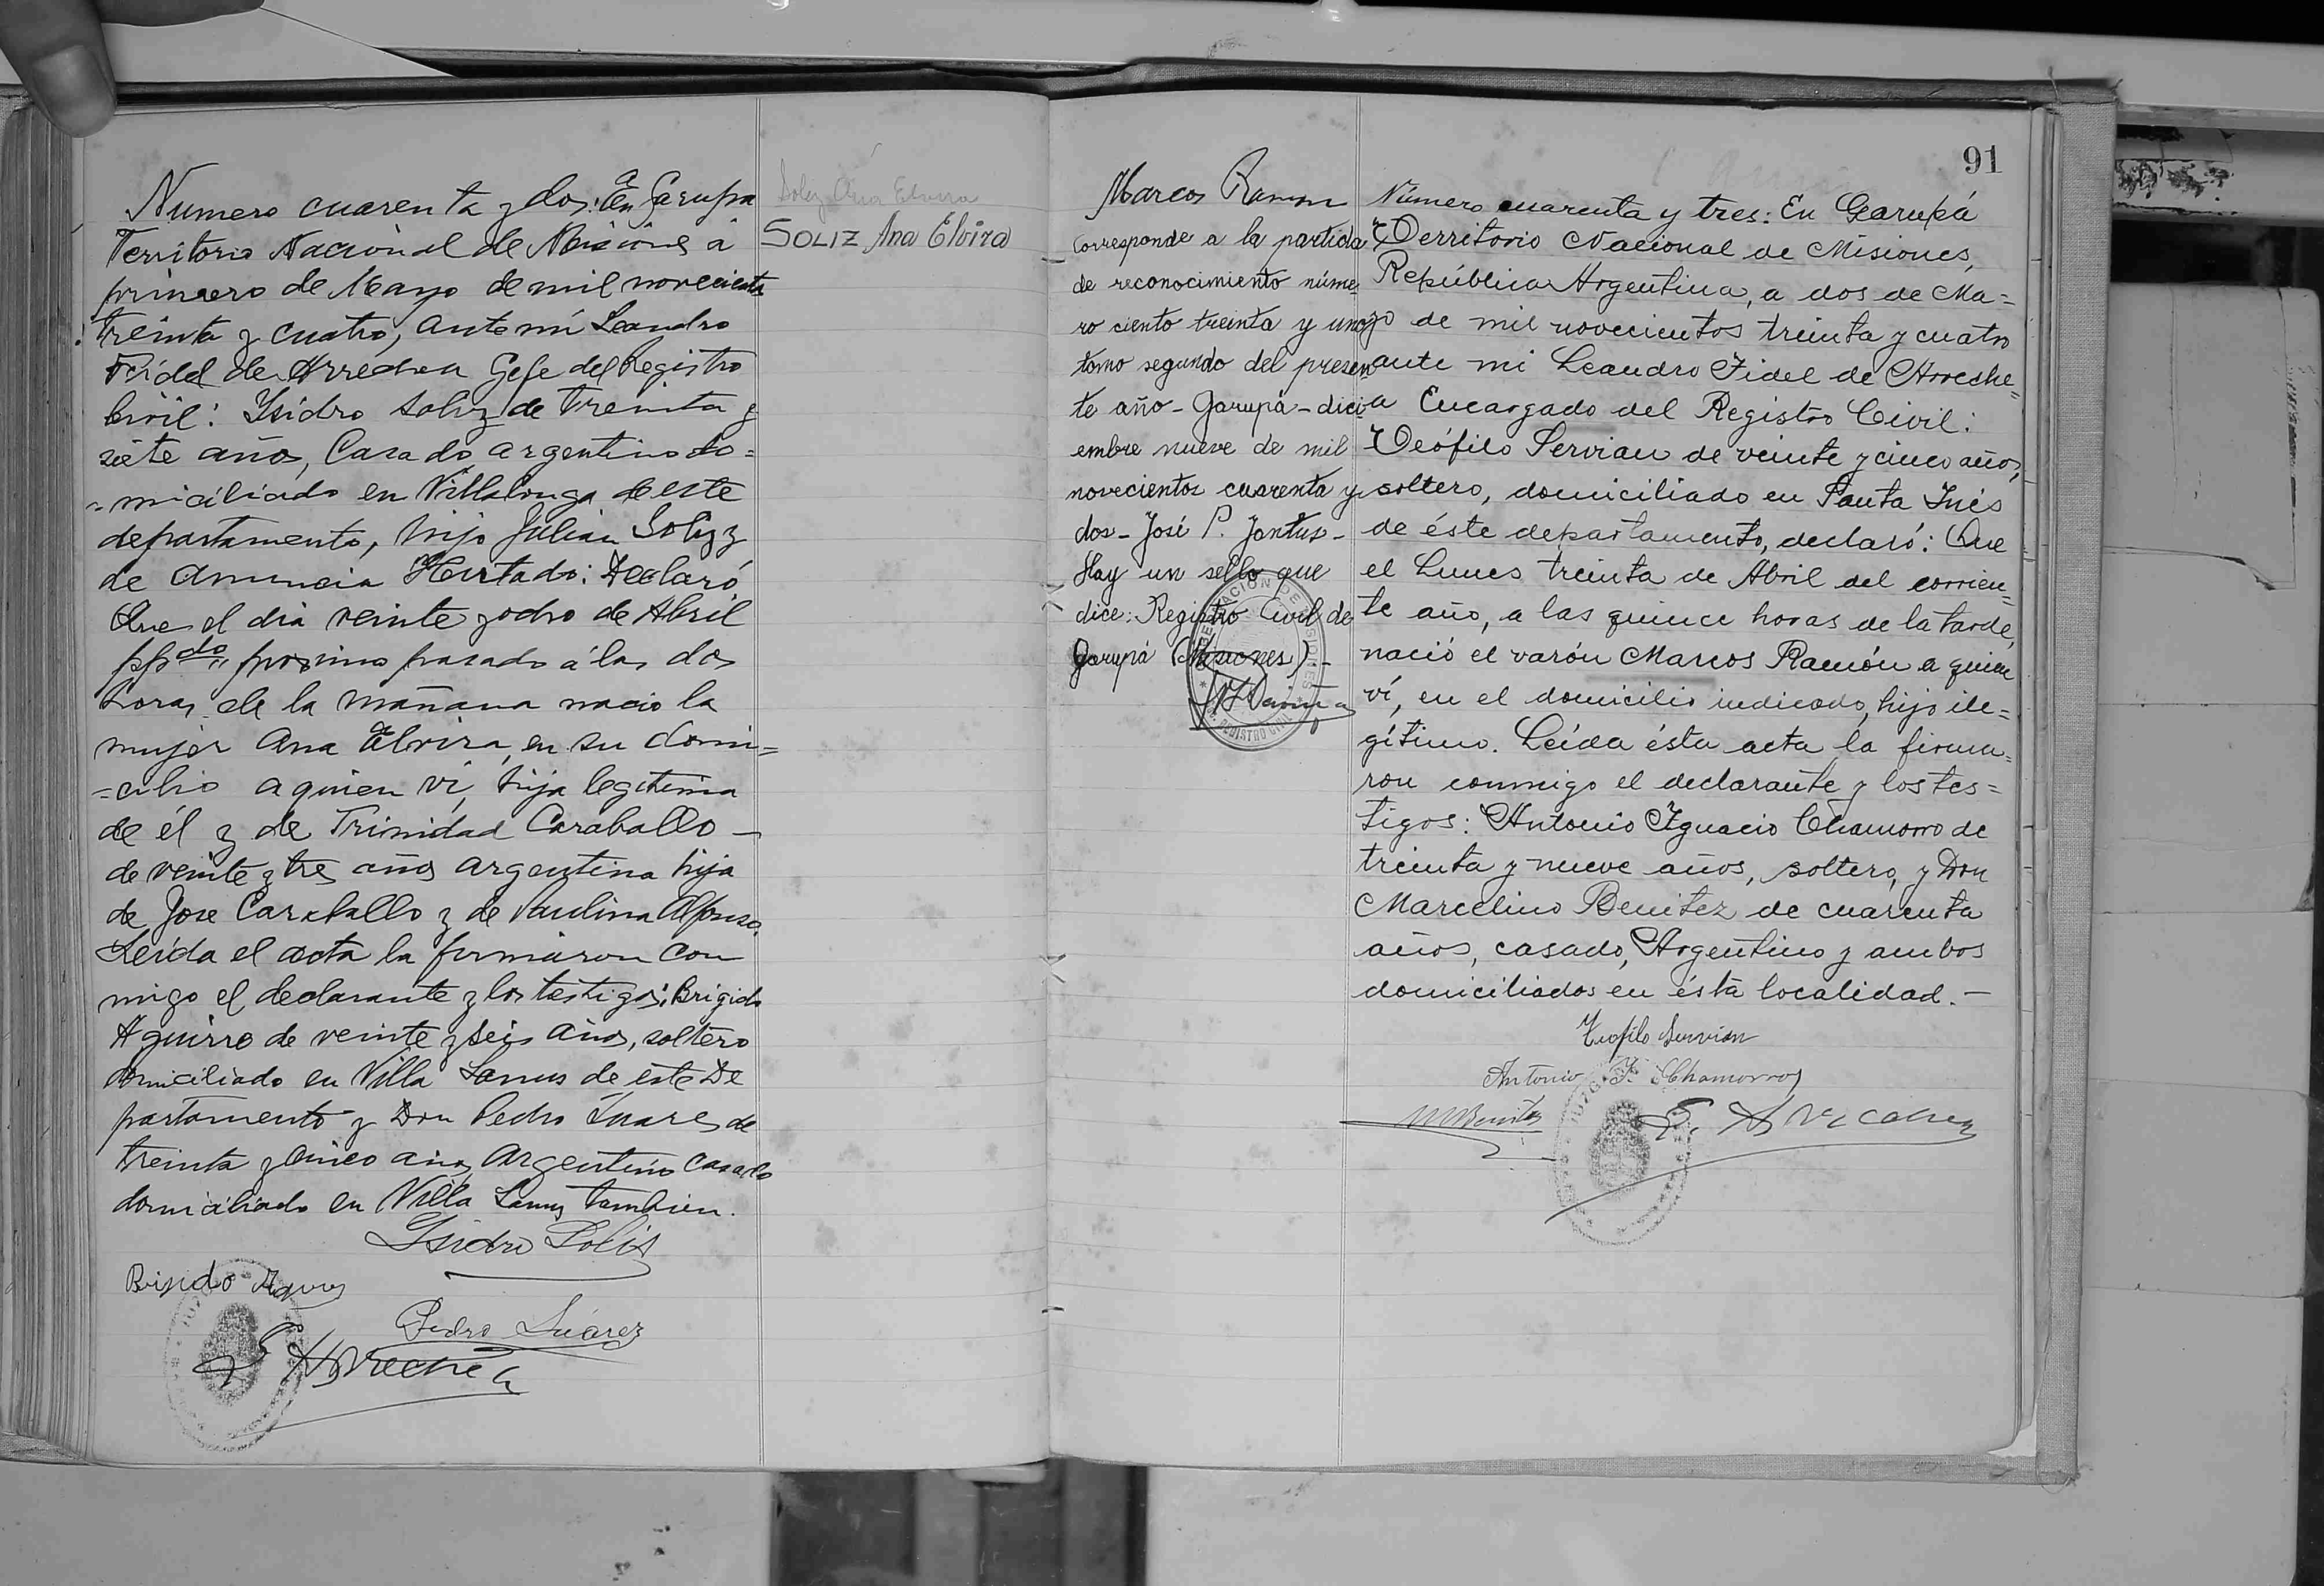 Numero cuarenta y dos: En Garupa
Territorio Nacional de Misiones á
primero de Mayo de mil novecientos
treinta y cuatro, ante mi Leandro
Fidel de Arrechea Gefe del Registro
Civil: Ysidro Soliz de treinta y
siete años, Casado argentino do=
=miciliado en Villalonga de este
departamento, hijo Julian Soliz y
de Anuncia Hurtado: Declaró
Que el dia veinte y ocho de Abril
ppdo,, proximo pasado á las dos
horas de la mañana nacio la
mujer Ana Elvira, en su domi=
=cilio a quien vi, hija legitima
de él y de Trinidad Caraballo —
de veinte y tres años argentina hija
de Jose Caraballo y de Paulina Alfonso.
Leida el acta la firmaron con
migo el declarante y los testigos: Brigido
Aguirre de veinte y seis años, soltero
domiciliado en Villa Lanus de este De
partamento y Don Pedro Suares de
treinta y cinco años Argentino casado
domiciliado en Villa Lanus tambien.
Isidro Solis
Pedro Súarez
Arrechea
Soliz Ana Elvira
SOLIZ Ana Elvira
Marcos Ramon
Corresponde a la partida
de reconocimiento núme
ro ciento treinta y uno
tomo segundo del presen
te año - Garupá - dici
embre nueve de mil
novecientos cuarenta y
dos - José P. Jantus -
Hay un sello que
dice: Registro Civil de
Garupá (Misiones). -
REGISTRO CIVIL
91
Número cuarenta y tres: En Garupá
Territorio Nacional de Misiones,
República Argentina, a dos de Ma=
yo de mil novecientos treinta y cuatro
ante mi Leandro Fidel de Arreche=
a Encargado del Registro Civil:
Teófilo Servian de veinte y cinco años,
soltero, domiciliado en Santa Inés
de éste departamento, declaró: Que
el Lunes treinta de Abril del corrien=
te año, a las quince horas de la tarde,
nació el varón Marcos Ramón a quien
ví, en el domicilio indicado, hijo ile=
gítimo. Leída ésta acta la firma=
ron conmigo el declarante y los tes=
tigos: Antonio Ignacio Chamorro de
treinta y nueve años, soltero, y Don
Marcelino Benitez de cuarenta
años, casado, Argentino y ambos
domiciliados en ésta localidad. -
Teofilo Servian
Antonio I. Chamorro
M Benitez
Arrechea